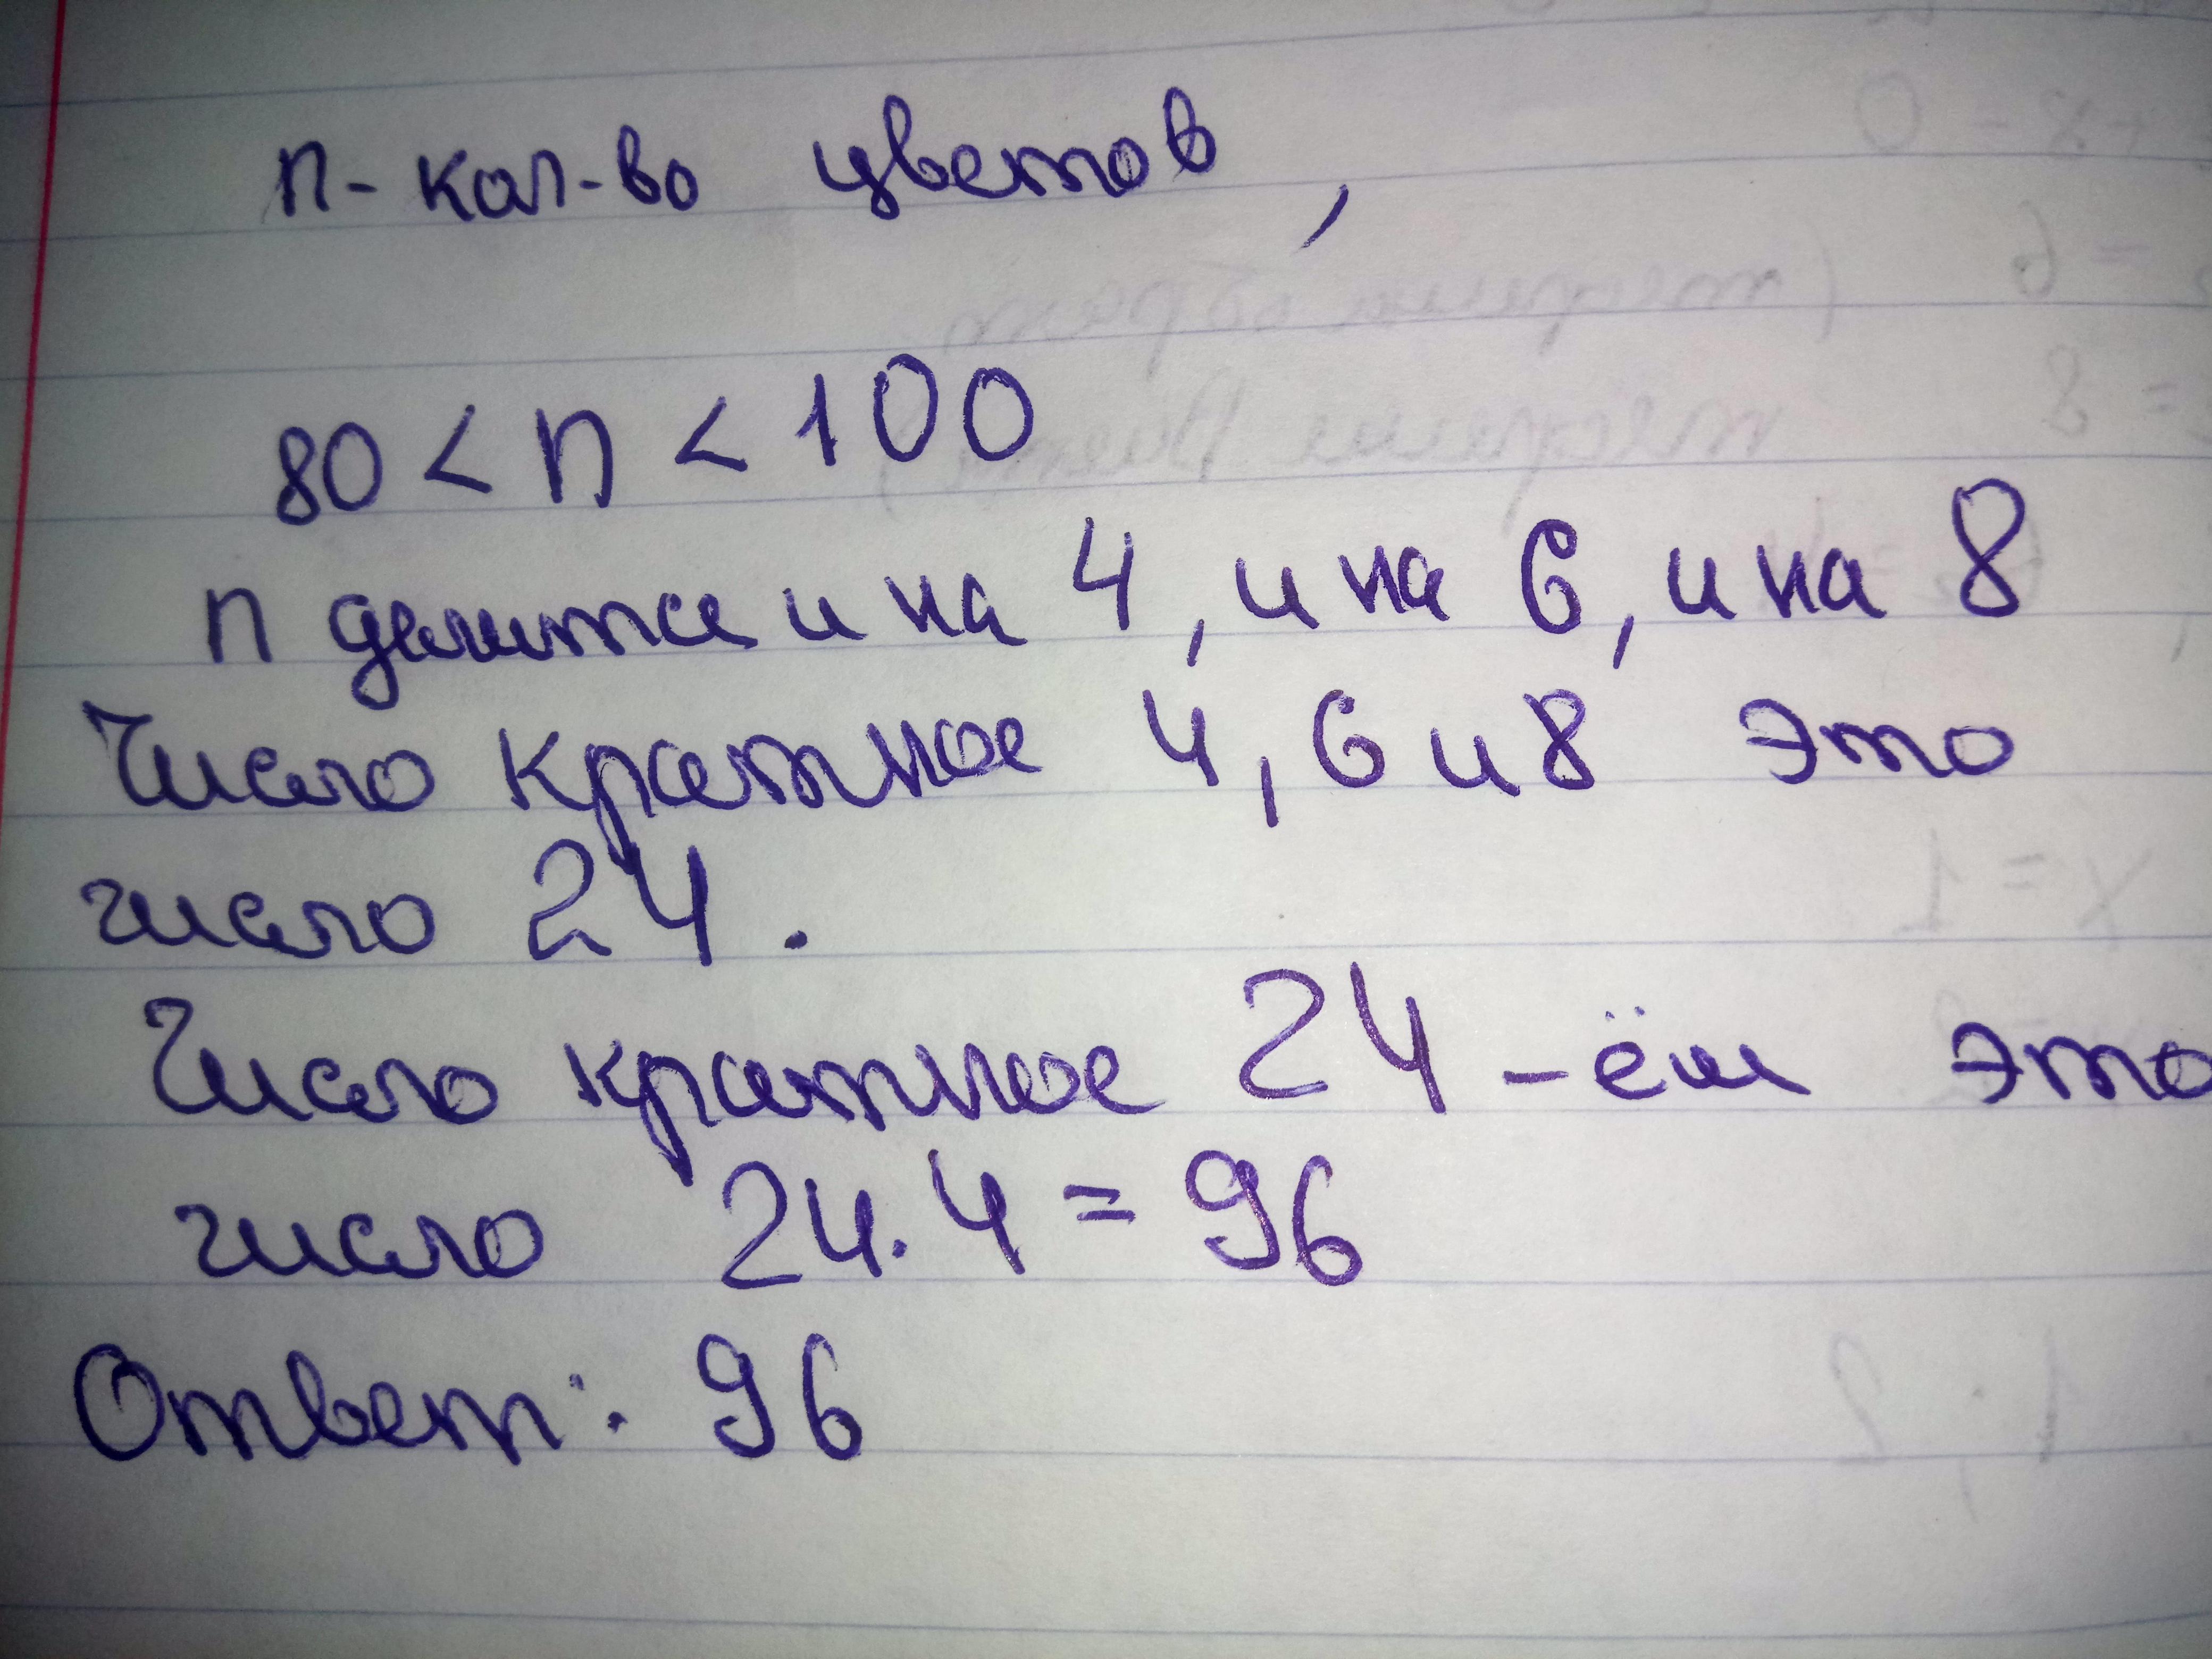 n - кол-во цветов,
80 < n < 100
n делится и на 4, и на 6, и на 8
Число кратное 4, 6 и 8 это
число 24.
Число кратное 24-ём это
число 24·4=96
Ответ: 96